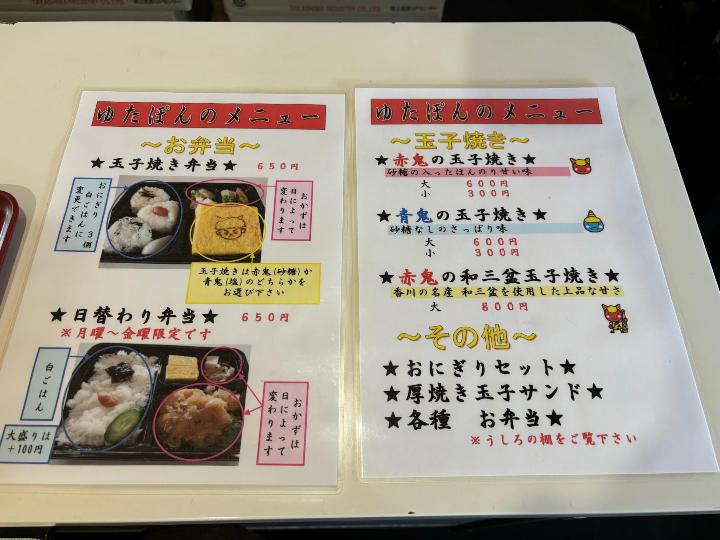 TAKASHIMA INDUSTRY CO.,LTD.
ゆたぽんのメニュー
～お弁当～
★玉子焼き弁当★ 650円
おにぎり 3個
白ごはんに
変更できます
おかずは
日によって
変わります
玉子焼きは赤鬼(砂糖)か
青鬼(塩)のどちらかを
お選び下さい
★日替わり弁当★ 650円
※月曜～金曜限定です
白ごはん
大盛りは
+100円
おかずは
日によって
変わります
ゆたぽんのメニュー
～玉子焼き～
★赤鬼の玉子焼き★
砂糖の入ったほんのり甘い味
大 600円
小 300円
★青鬼の玉子焼き★
砂糖なしのさっぱり味
大 600円
小 300円
★赤鬼の和三盆玉子焼き★
香川の名産 和三盆を使用した上品な甘さ
大 800円
～その他～
★おにぎりセット★
★厚焼き玉子サンド★
★各種 お弁当★
※うしろの棚をご覧下さい